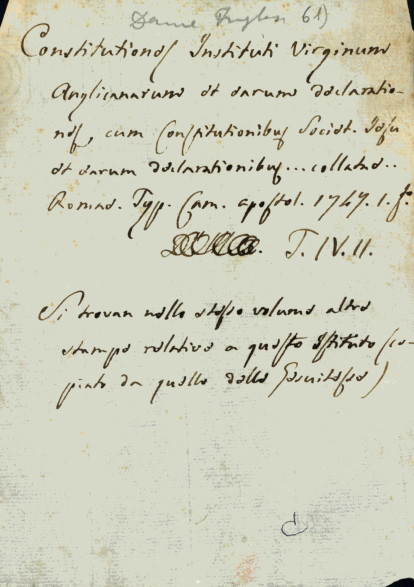 Dame Inglesi 61)
Constitutiones Instituti Virginum
Anglicanarum et earum declaratio-
nes, cum Constitutionibus Societ. Jesu
et earum declarationibus... collatae..
Romae. Typ. Cam. apostol. 1747. 1. fo.
T. IV. 11.
Si trovan nello stesso volume altre
stampe relative a questo Istituto (co-
piato da quello delle Gesuitesse)